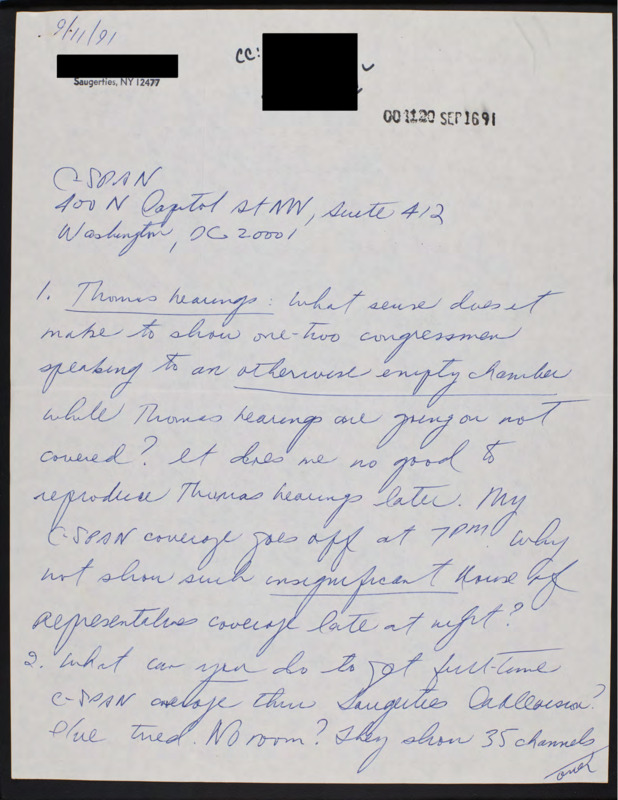 9/11/91
Saugerties, NY 12477
cc:
00 1120 SEP 16 91
C-SPAN
400 N Capitol St NW, Suite 412
Washington, DC 20001
1. Thomas hearings: What sense does it
make to show one-two congressmen
speaking to an otherwise empty chamber
while Thomas hearings are going on not
covered? It does me no good to
reproduce Thomas hearings later. My
C-SPAN coverage goes off at 7PM. Why
not show such insignificant House of
Representatives coverage late at night?
2. What can you do to get full-time
C-SPAN coverage thru Saugerties Cablevision?
I've tried. No room? They show 35 channels
over